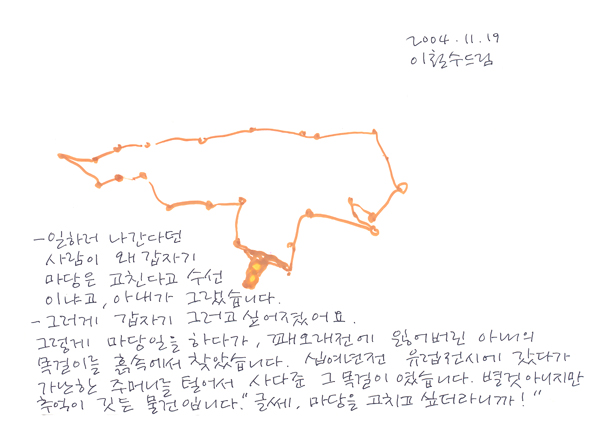 2004.11.19
이철수드림
-일하러 나간다던
사람이 왜 갑자기
마당은 고친다고 수선
이냐고, 아내가 그랬습니다.
-그러게 갑자기 그러고 싶어졌어요.
그렇게 마당일을 하다가, 꽤 오래전에 잃어버린 아내의
목걸이를 흙속에서 찾았습니다. 십여년전 유럽전시에 갔다가
가난한 주머니를 털어서 사다준 그 목걸이였습니다. 별것 아니지만
추억이 깃든 물건입니다. "글쎄, 마당을 고치고 싶더라니까!"